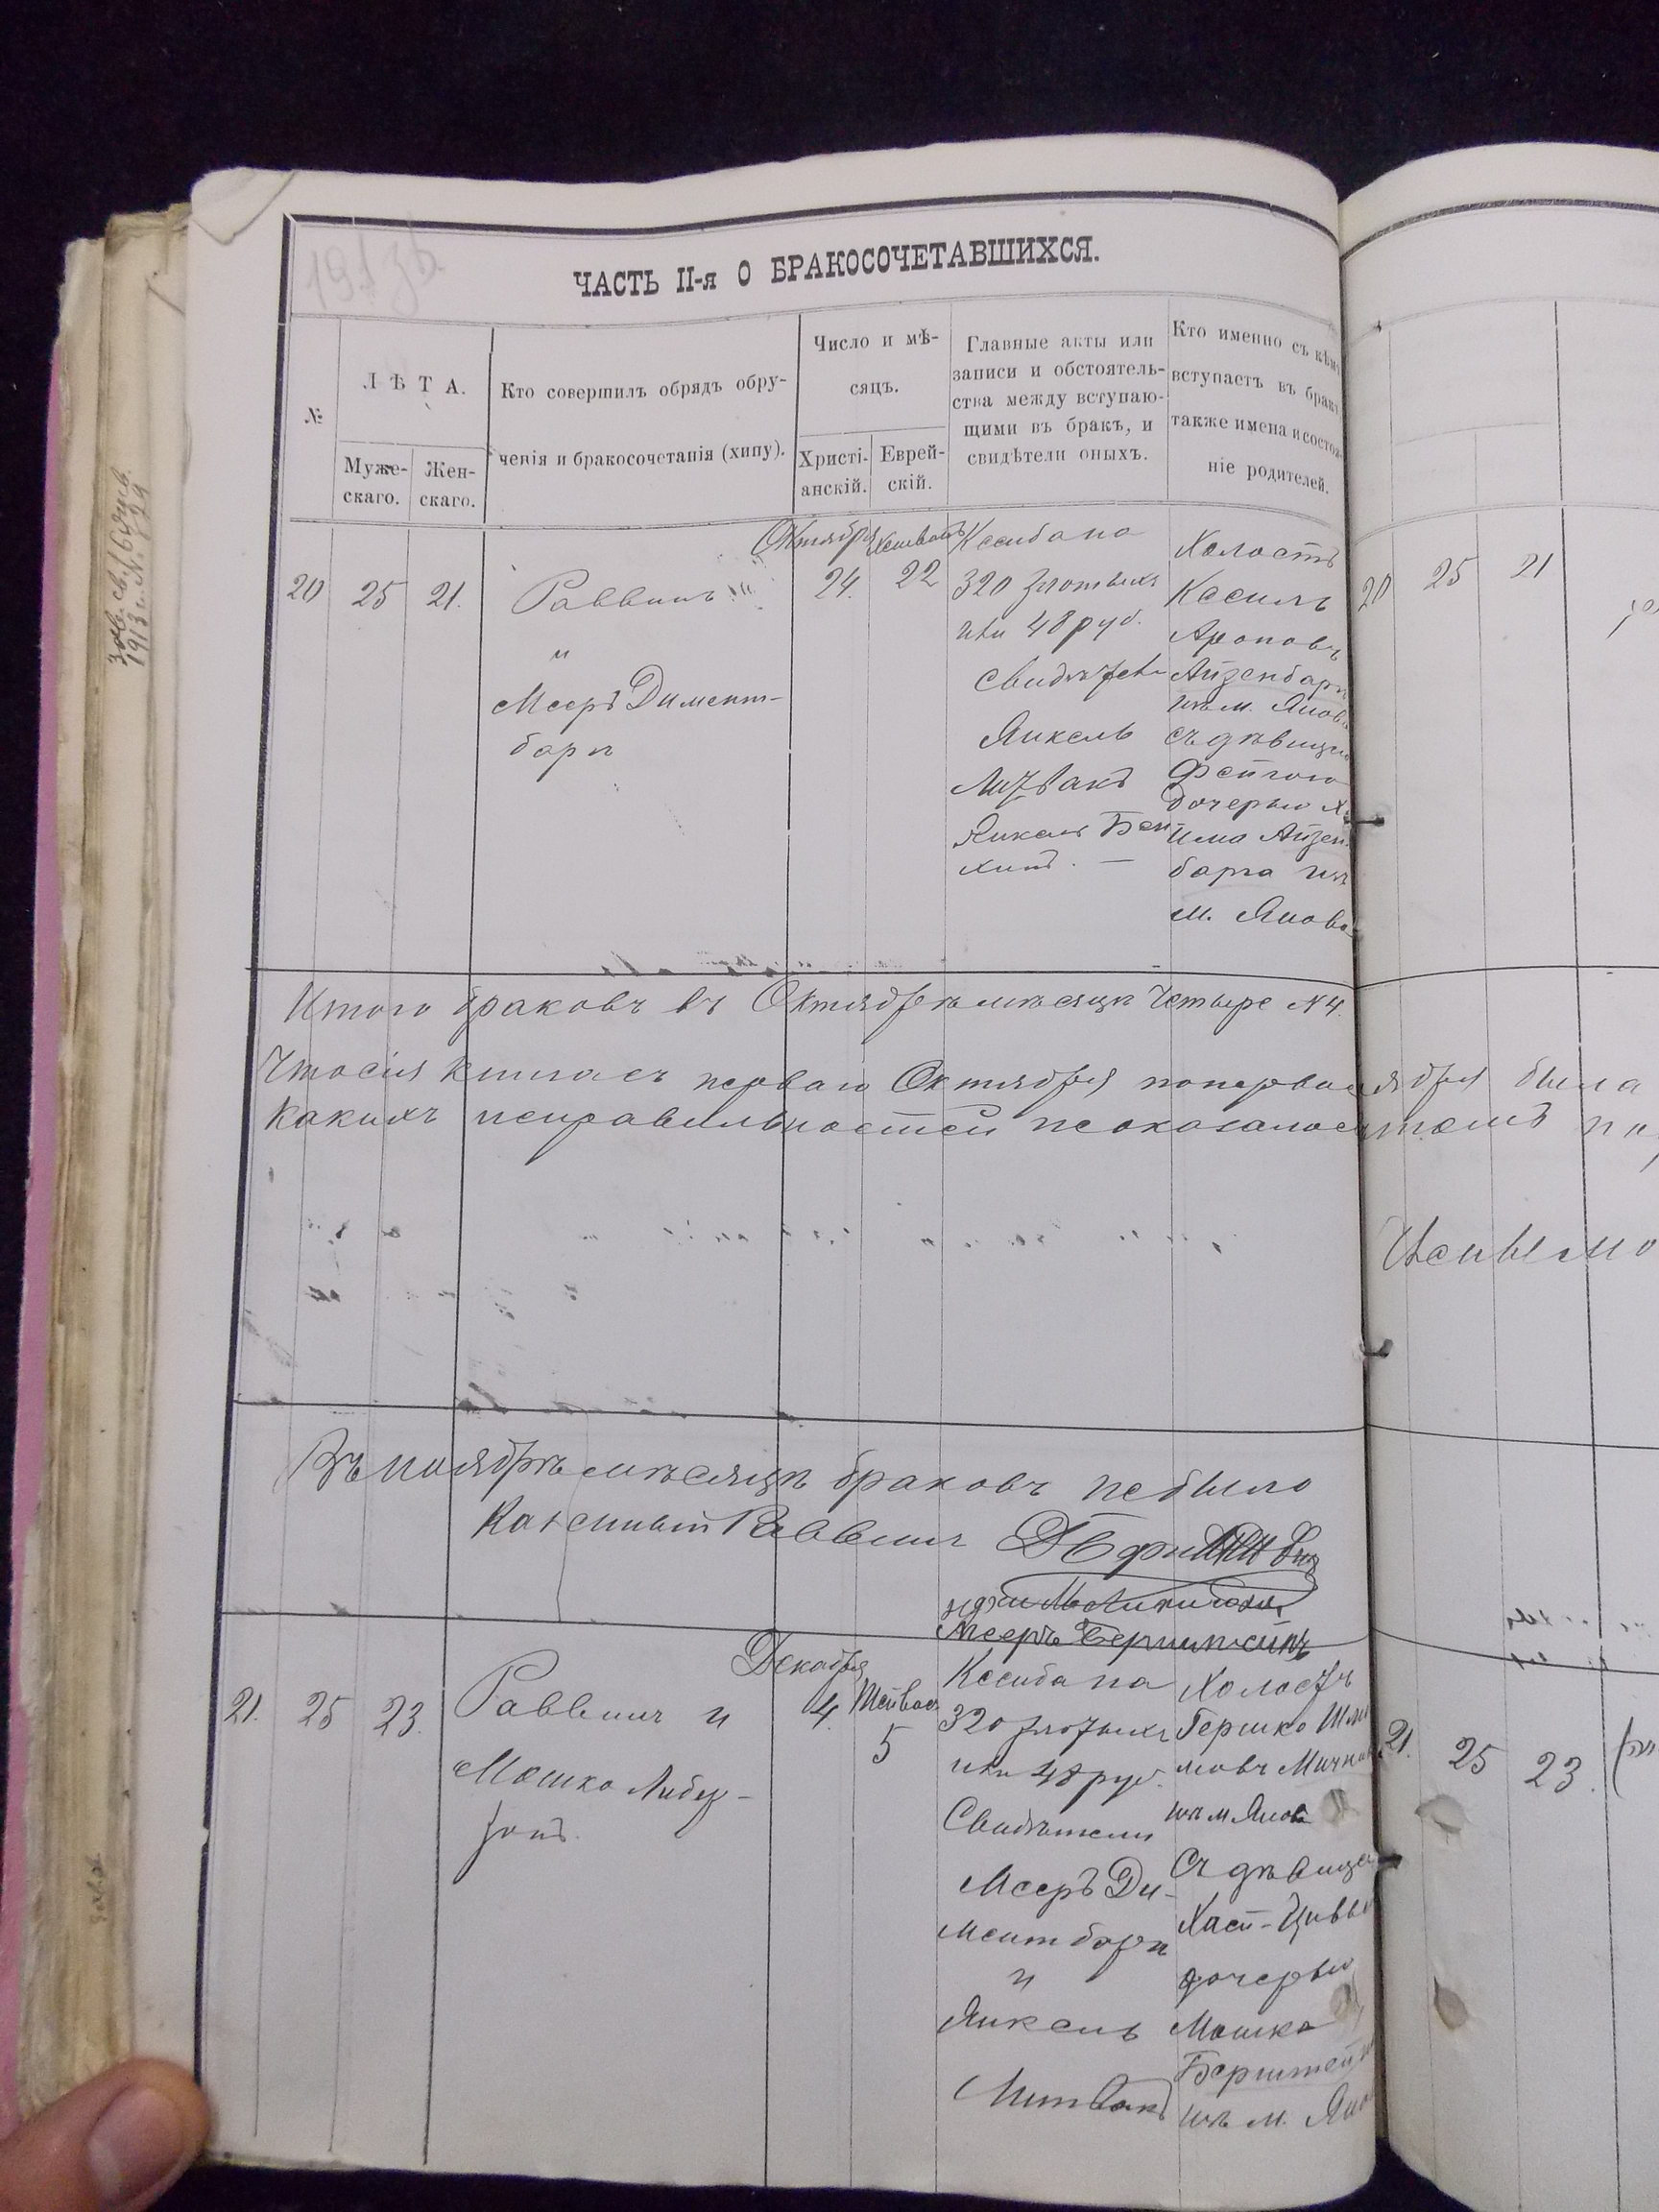 ЧАСТЬ II-я О БРАКОСОЧЕТАВШИХСЯ.
№
ЛѢТА.
Муже-
скаго.
Жен-
скаго.
Кто совершилъ обрядъ обру-
ченія и бракосочетанія (хипу).
Число и мѣ-
сяцъ.
Христі-
анскій.
Еврей-
скій.
Главные акты или
записи и обстоятель-
ства между вступаю-
щими въ бракъ, и
свидѣтели оныхъ.
Кто именно съ кѣмъ
вступаетъ въ бракъ
также имена и состоя-
ніе родителей.
20
25
21.
Раввинъ
и
Мееръ Димент-
барг
Октября
24.
22
Ксиба на
320 злотыхъ
или 48 руб.
Свидѣтели
Янкель
Литвакъ
Холостъ
Кесиль
Ароновъ
Айзенбарг
изъ м. Янова
съ дѣвицею
Фейгою
дочерью
Айзен
барга изъ
м. Янова
20
25
21
Итого браковъ въ Октябрѣ мѣсяцѣ четыре №4.
Что сія книга съ перваго Октября по первое
какихъ неправильностей не оказалось
ября была
Въ ноябрѣ мѣсяцѣ браковъ не было
Казенный Раввинъ
Мееръ Бернштейнъ
21.
25
23.
Раввинъ и
Мошко Либер-
зонъ.
Декабря
4.
Тейвес
5
Ксиба на
320 злотыхъ
или 48 руб.
Свидѣтели
Мееръ Ди-
ментбарг
и
Янкель
Литвакъ
Холостъ
Гершко Шлио
мовъ
изъ м Янова
Съ дѣвицею
Хаей-Цивьею
дочерью
Мошка
Бернштейна
изъ м. Янова
21.
25
23.